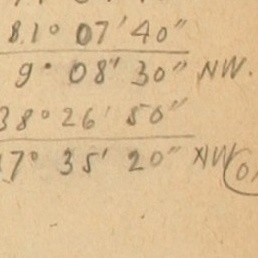 81° 07' 40"
9° 08' 30" NW.
38° 26' 50"
47° 35' 20" NW